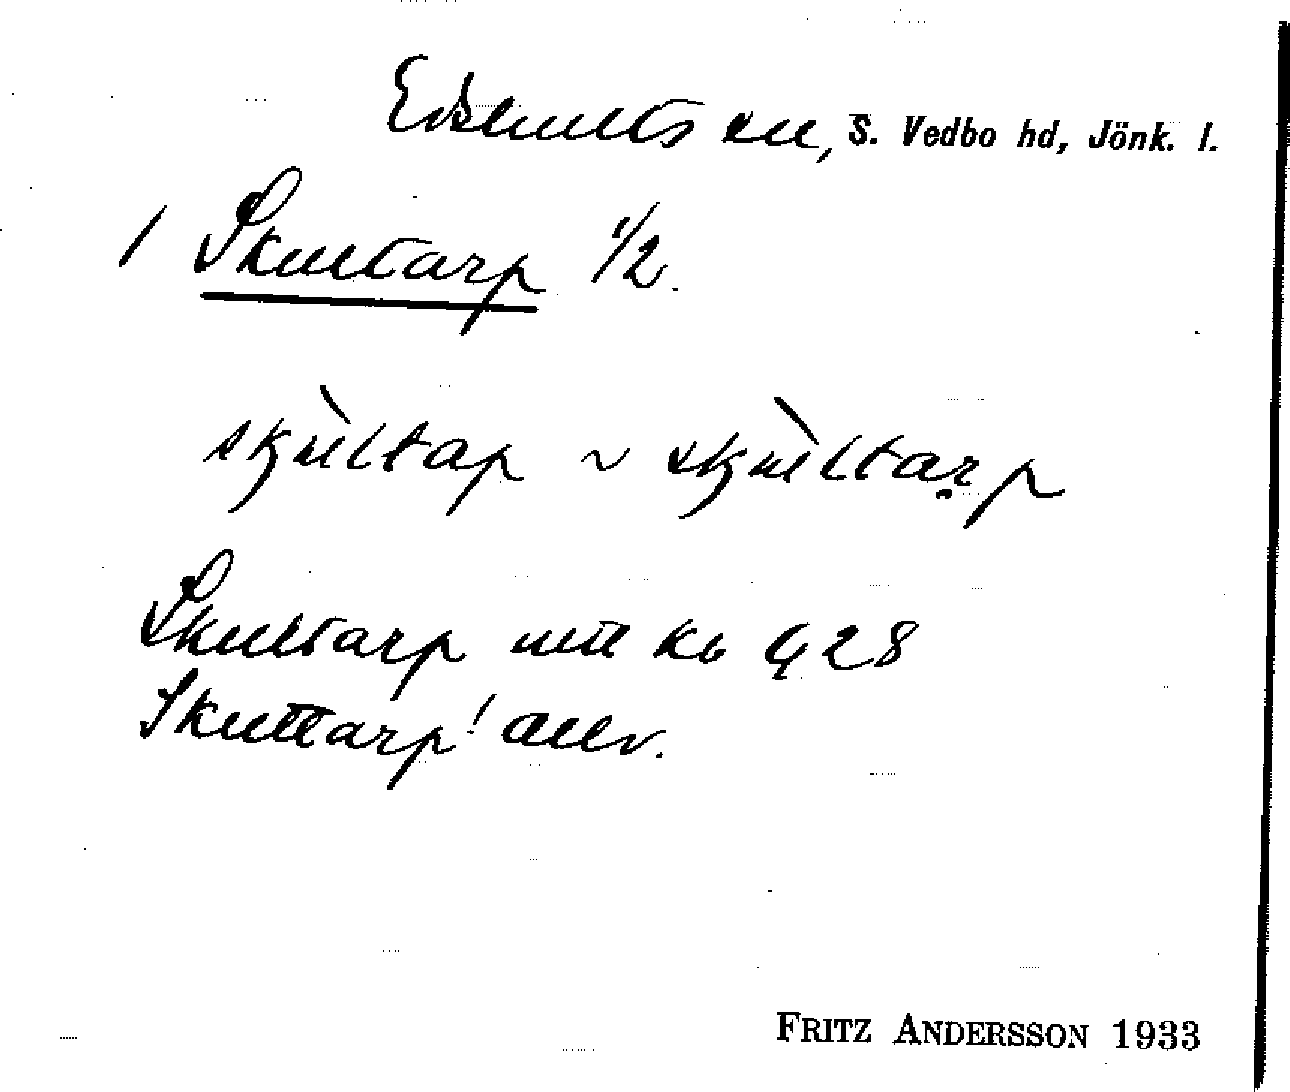 Edshults sn, S. Vedbo hd, Jönk. l.
1 Skultarp 1/2.
skùltap ~ skùltarp
Skultarp 28
Skuttarp!
FRITZ ANDERSSON 1933